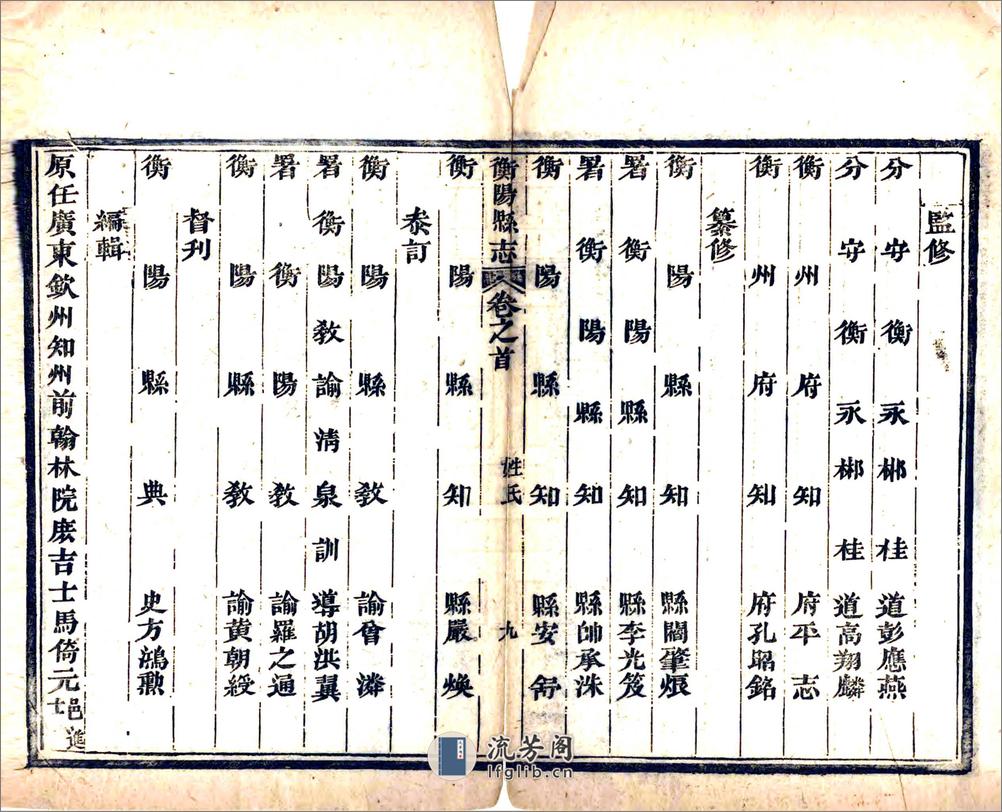 監修
分守衡永郴桂道彭應燕
分守衡永郴桂道高翔麟
衡州府知府平志
衡州府知府孔昭銘
纂修
衡陽縣知縣閻肇烺
署衡陽縣知縣李光笈
署衡陽縣知縣師承洙
衡陽縣知縣安舒
衡陽縣志 卷之首 姓氏 九
衡陽縣知縣嚴煥
叅訂
衡陽縣教諭曾潾
署衡陽教諭清泉訓導胡洪翼
署衡陽教諭羅之適
衡陽縣教諭黃朝綬
督刋
衡陽縣典史方鴻勲
編輯
原任廣東欽州知州前翰林院庶吉士馬倚元邑進士
流芳阁
lfglib.cn